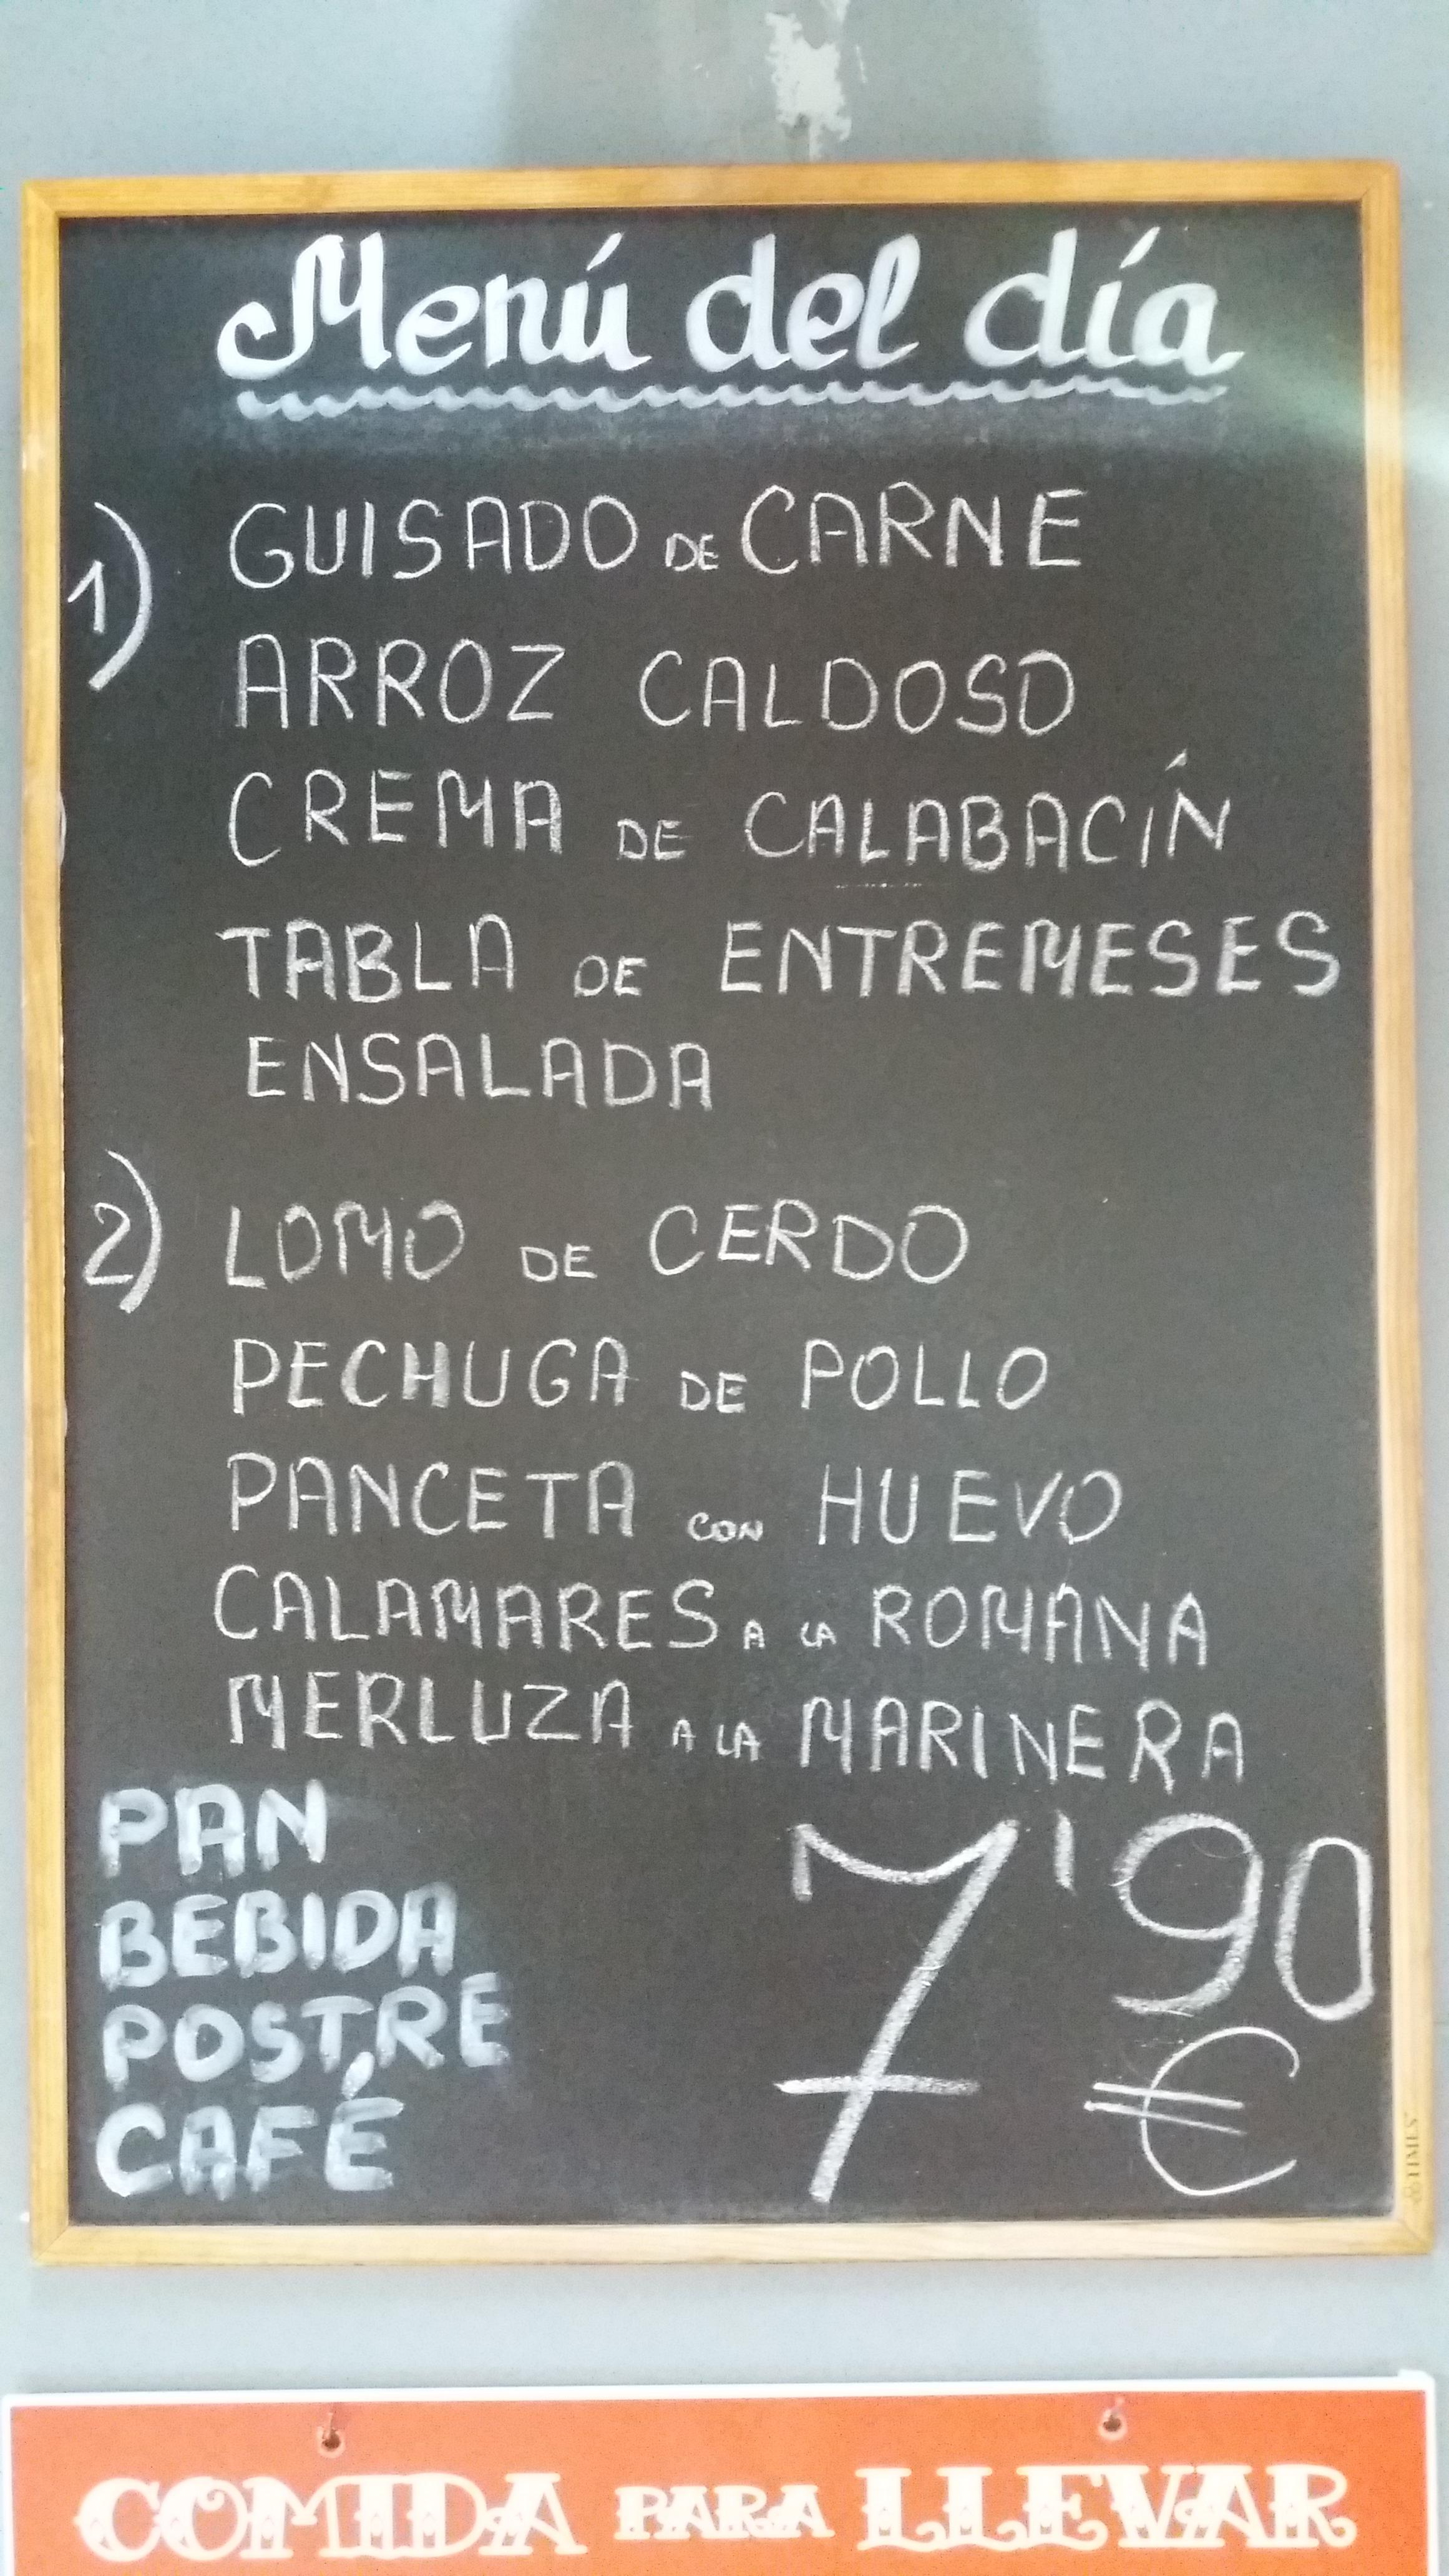 Menú del día
1) GUISADO DE CARNE
ARROZ CALDOSO
CREMA DE CALABACÍN
TABLA DE ENTREMESES
ENSALADA
2) LOMO DE CERDO
PECHUGA DE POLLO
PANCETA CON HUEVO
CALAMARES A LA ROMANA
MERLUZA A LA MARINERA
PAN
BEBIDA
POSTRE
CAFÉ
7'90
€
TIMES
COMIDA PARA LLEVAR